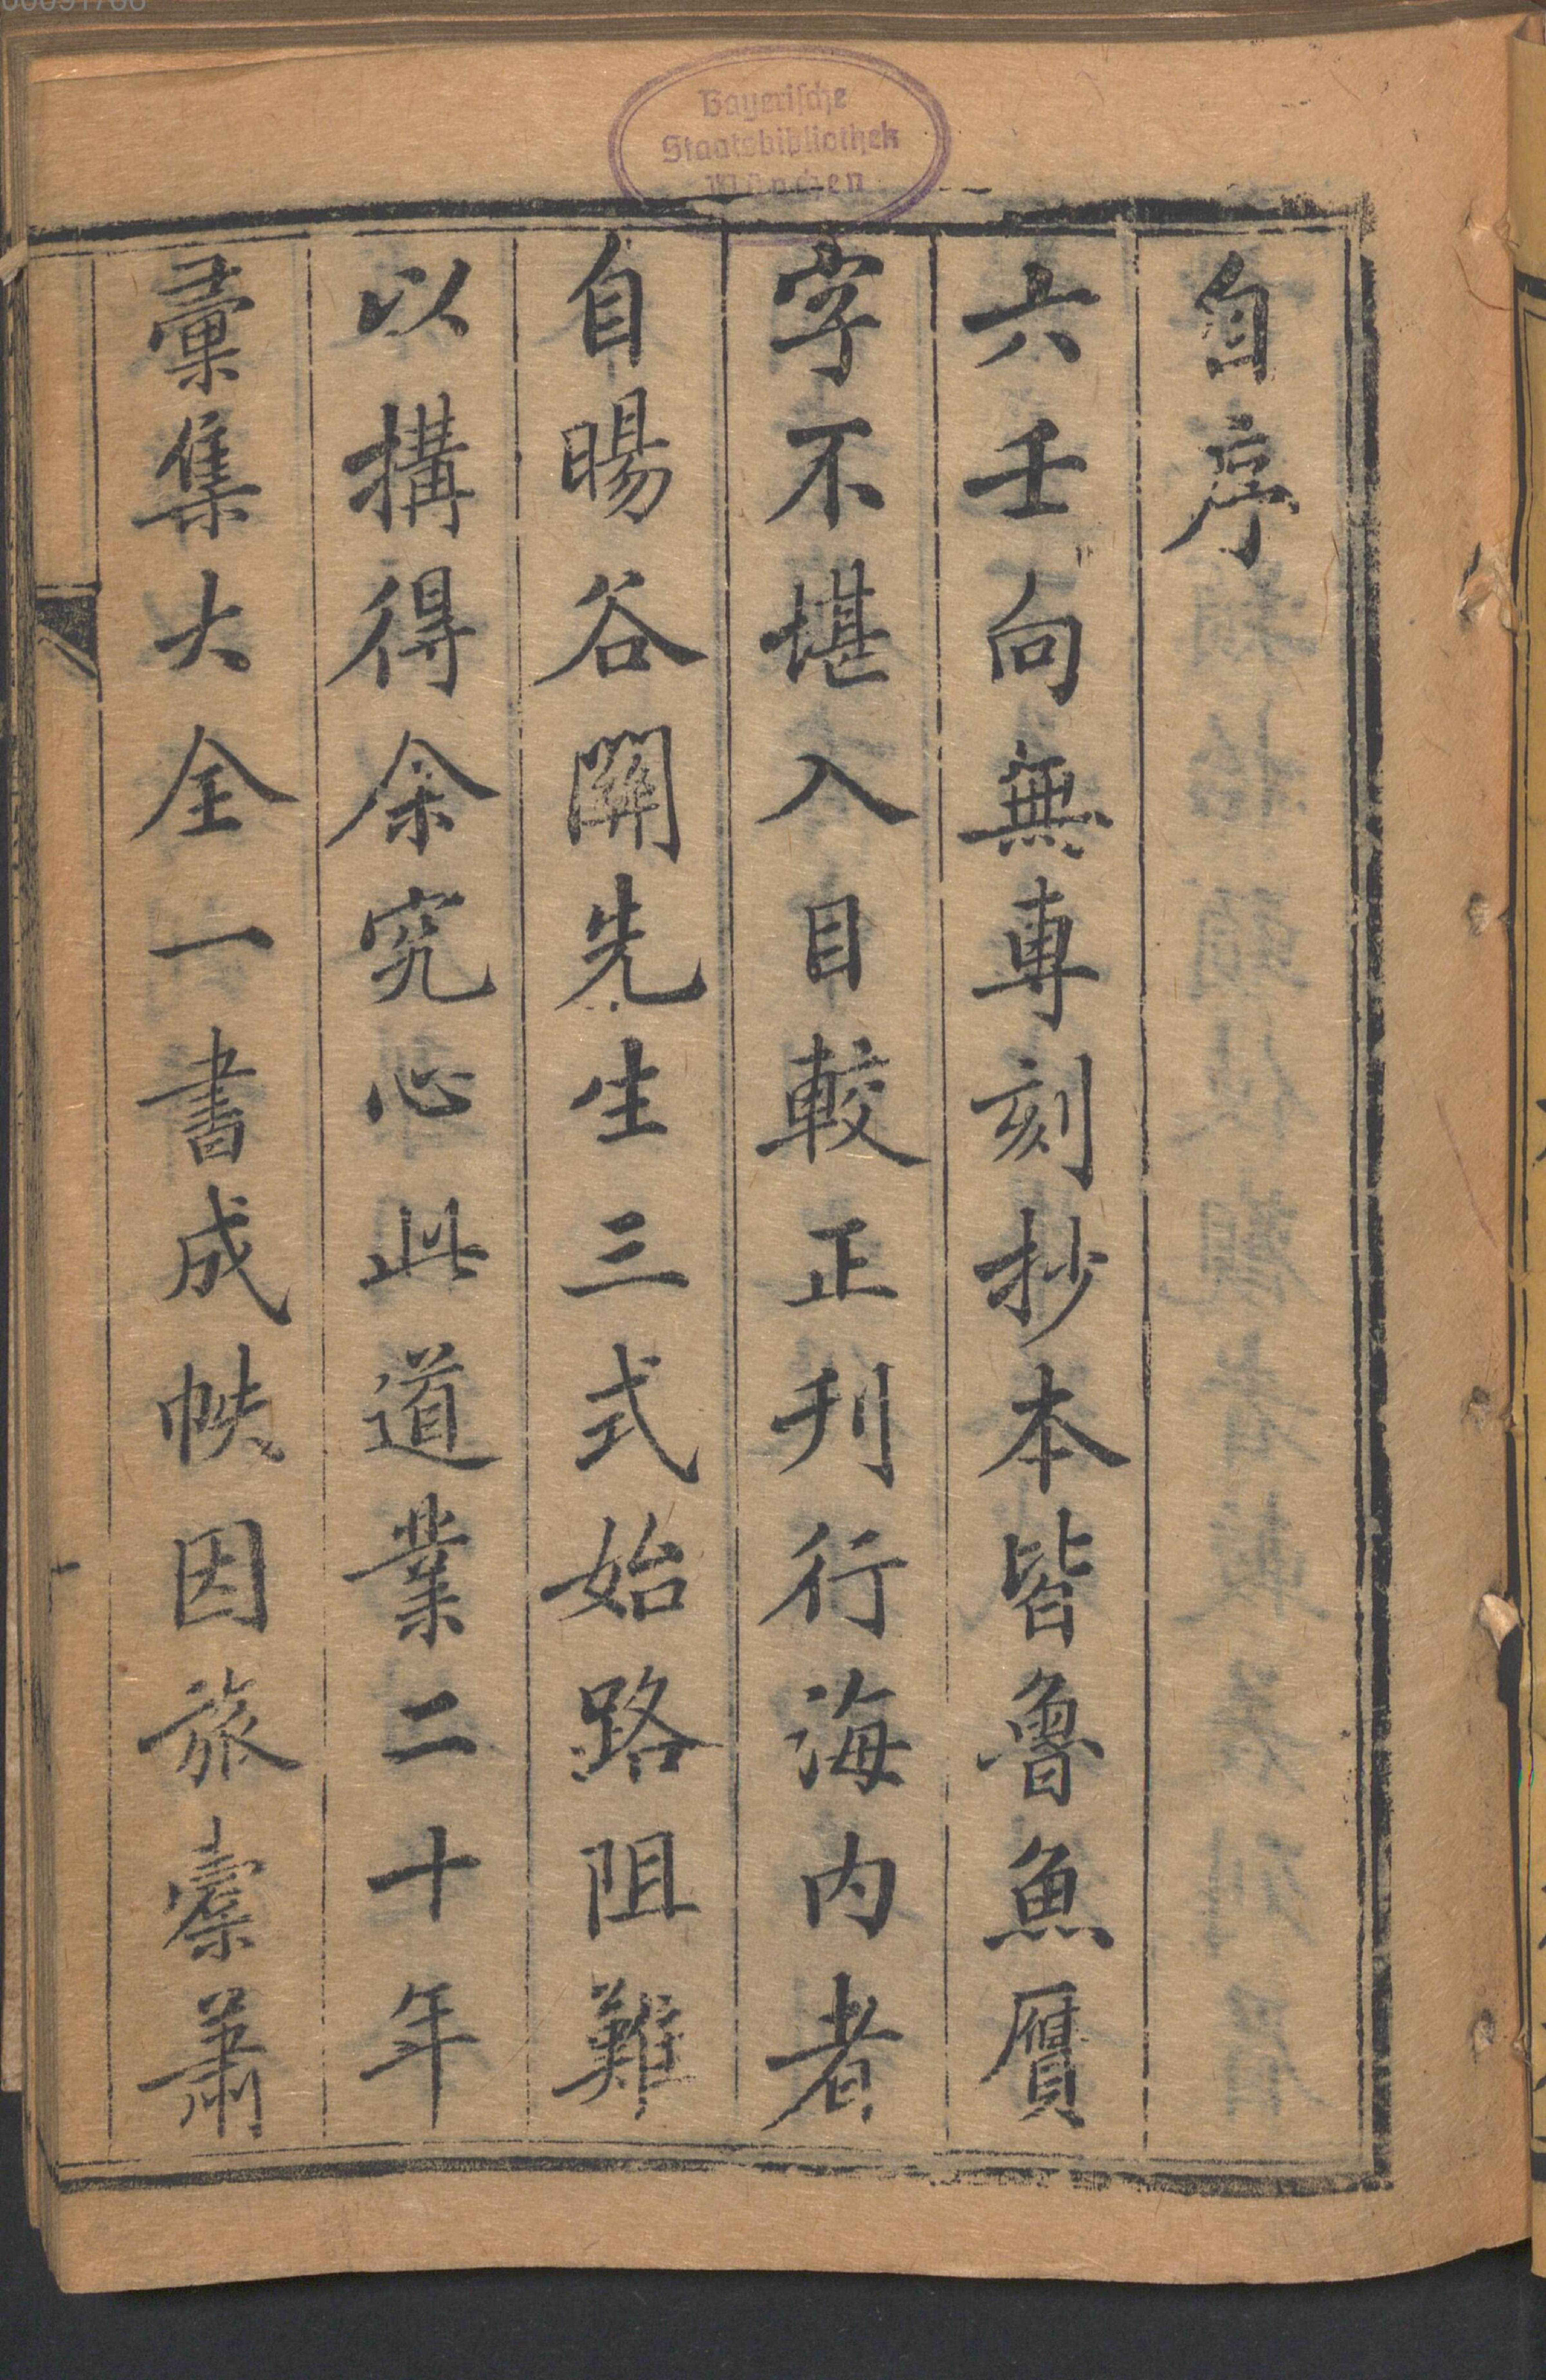 自序
六壬向無專刻抄本皆魯魚贋
字不堪入目較正刋行海内者
自暘谷關先生三式始路阻難
以搆得余究心此道業二十年
彚集大全一書成帙因旅槖蕭
Bayerische
Staatsbibliothek
München